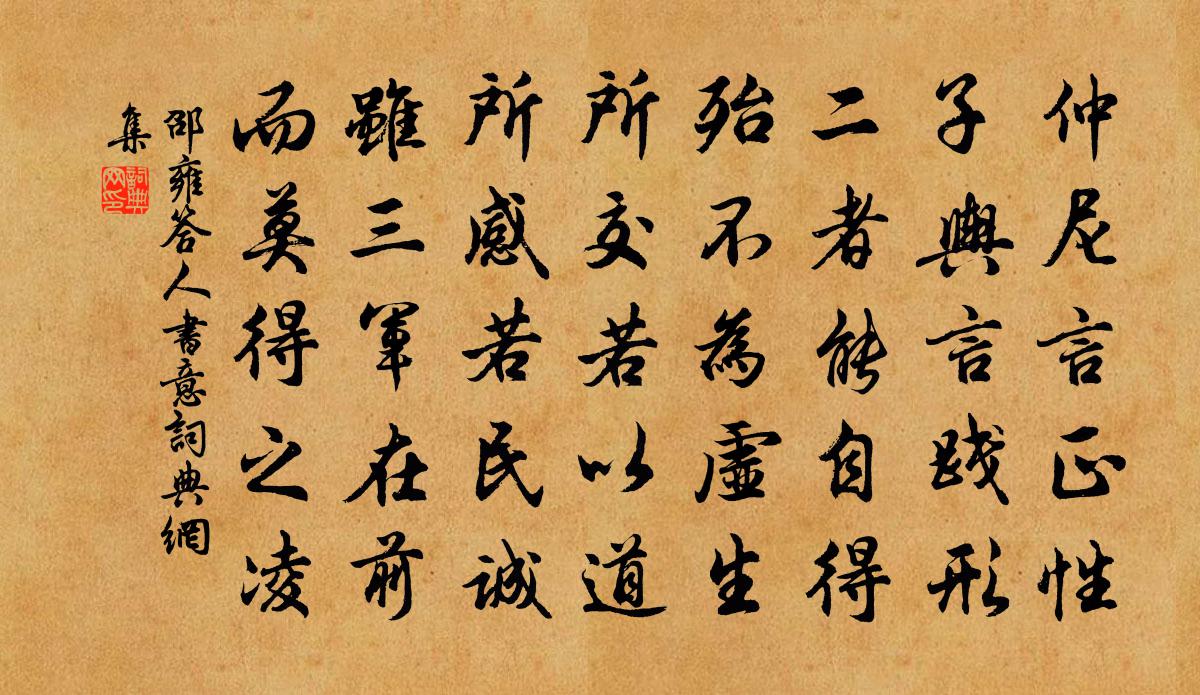 仲尼言正性
子輿言踐形
二者能自得
殆不為虛生
所交若以道
所感若民誠
雖三軍在前
而莫得之凌
邵雍答人書意詞典網
集
詞典
网印